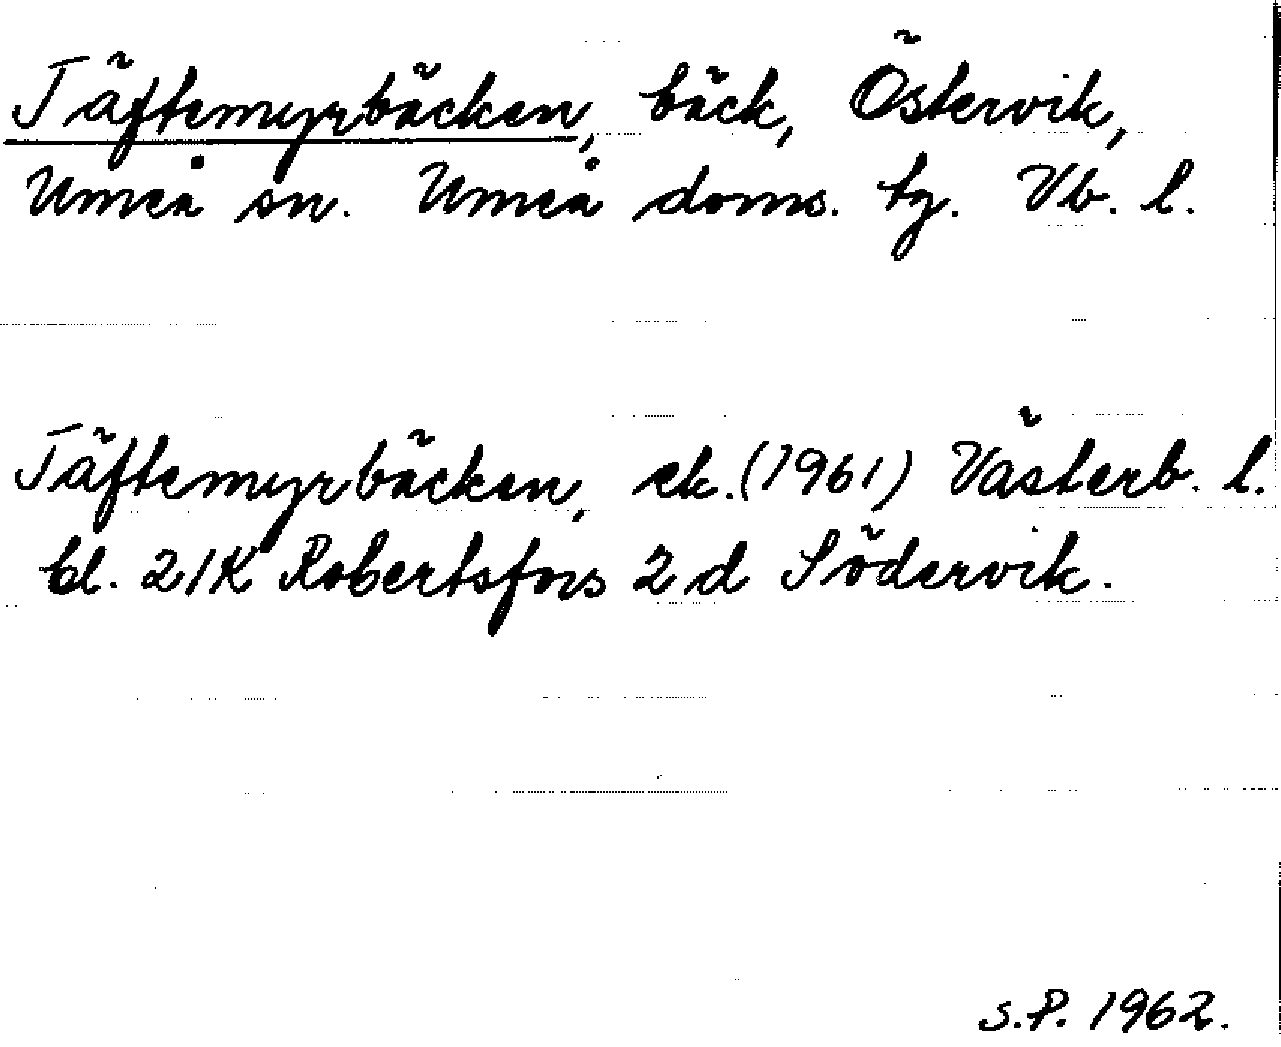 Täftemyrbäcken, bäck, Östervik,
Umeå sn. Umeå doms. tg. Vb. l.
Täftemyrbäcken, ek. (1961) Västerb. l.
bl. 21K Robertsfors 2d Södervik.
S.P. 1962.